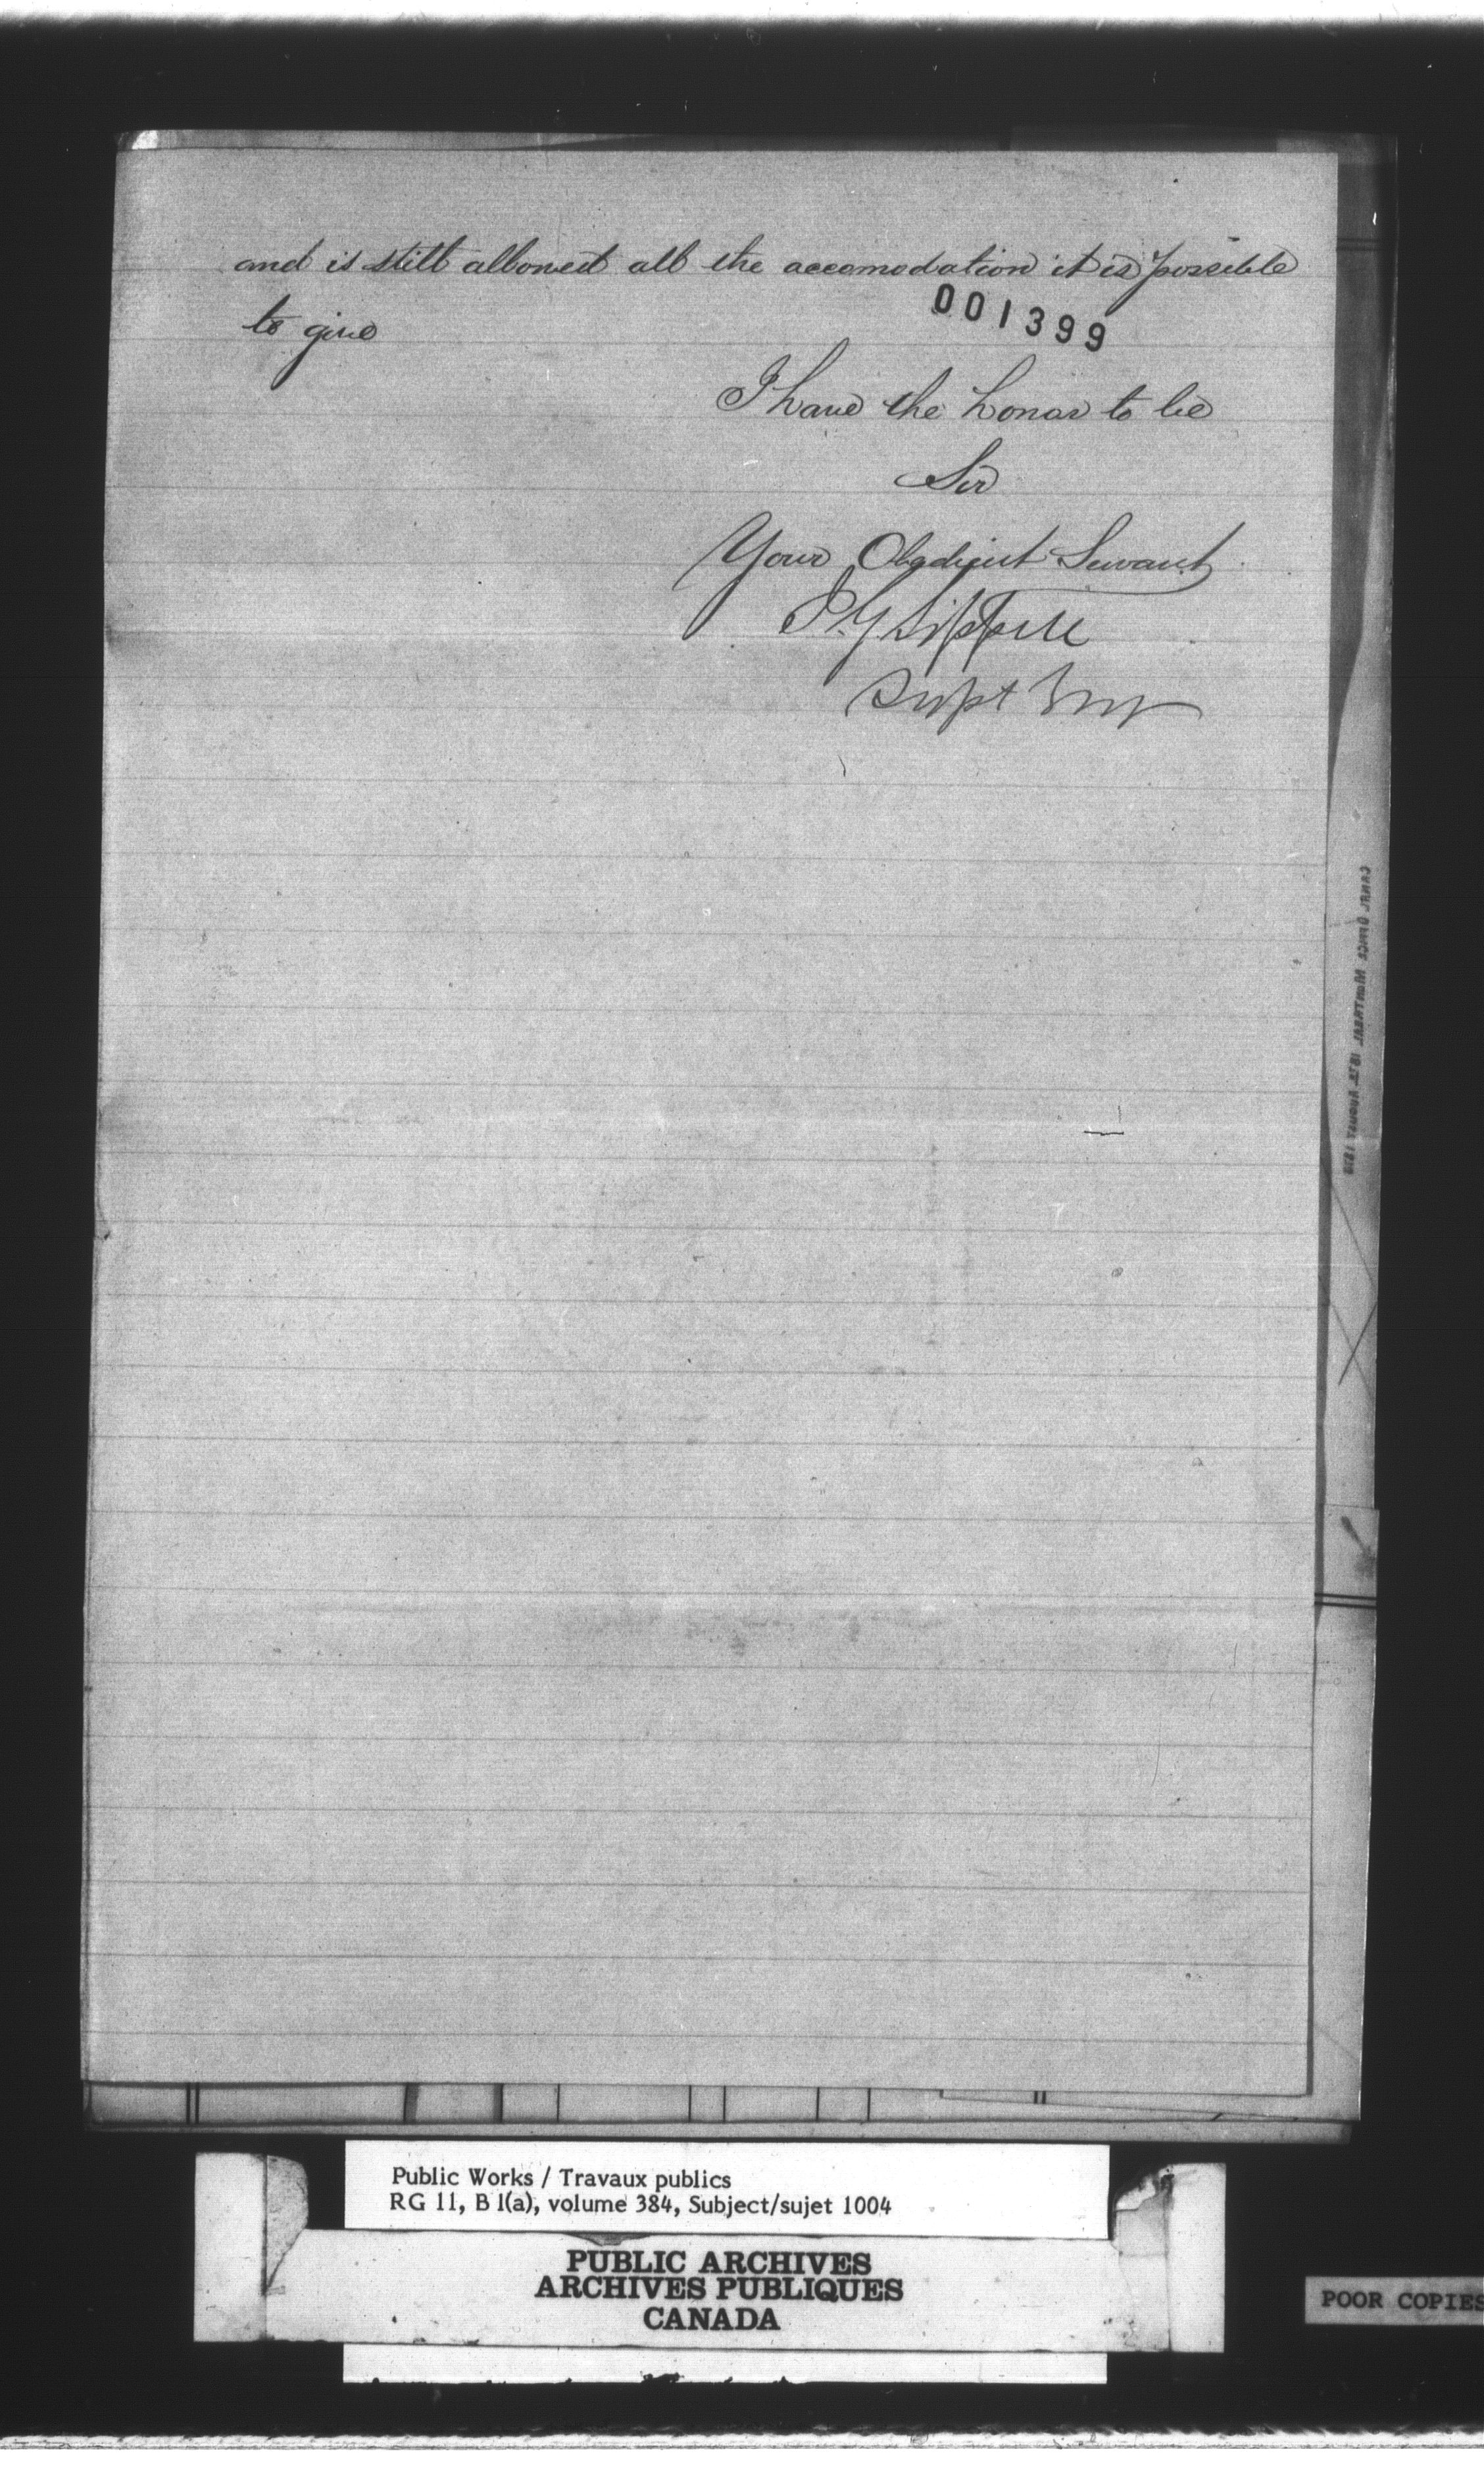 and is still allowed all the accomodation it is possible
001399
to give
I have the honor to be
Sir
Your Obedient Servant
J.G Sippell
Supt Eng
Public Works / Travaux publics
RG 11, B 1(a), volume 384, Subject/sujet 1004
PUBLIC ARCHIVES
ARCHIVES PUBLIQUES
CANADA
POOR COPIES